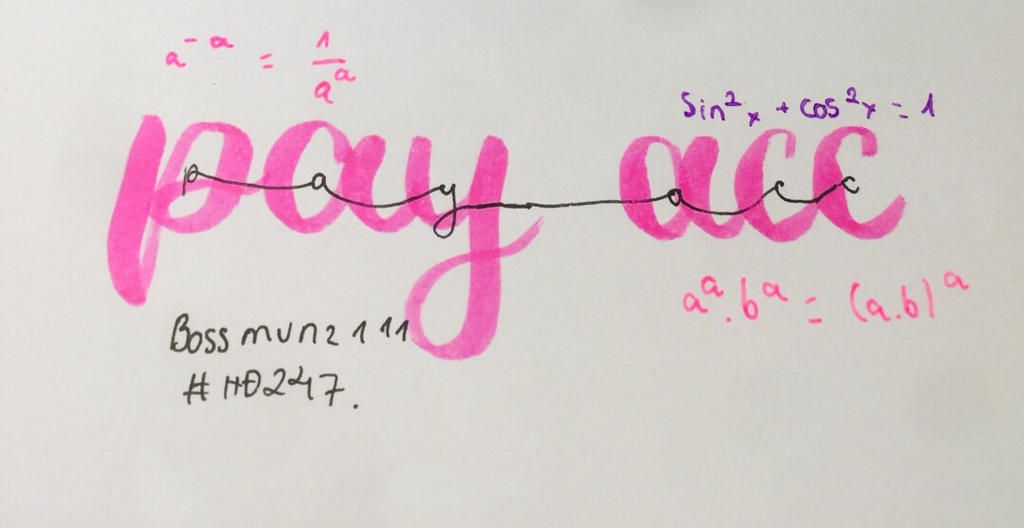 a⁻ᵃ = 1/aᵃ
sin²x + cos²x = 1
pay acc
pay acc
aᵃ.bᵃ = (a.b)ᵃ
Boss munz 111
# HĐ247.